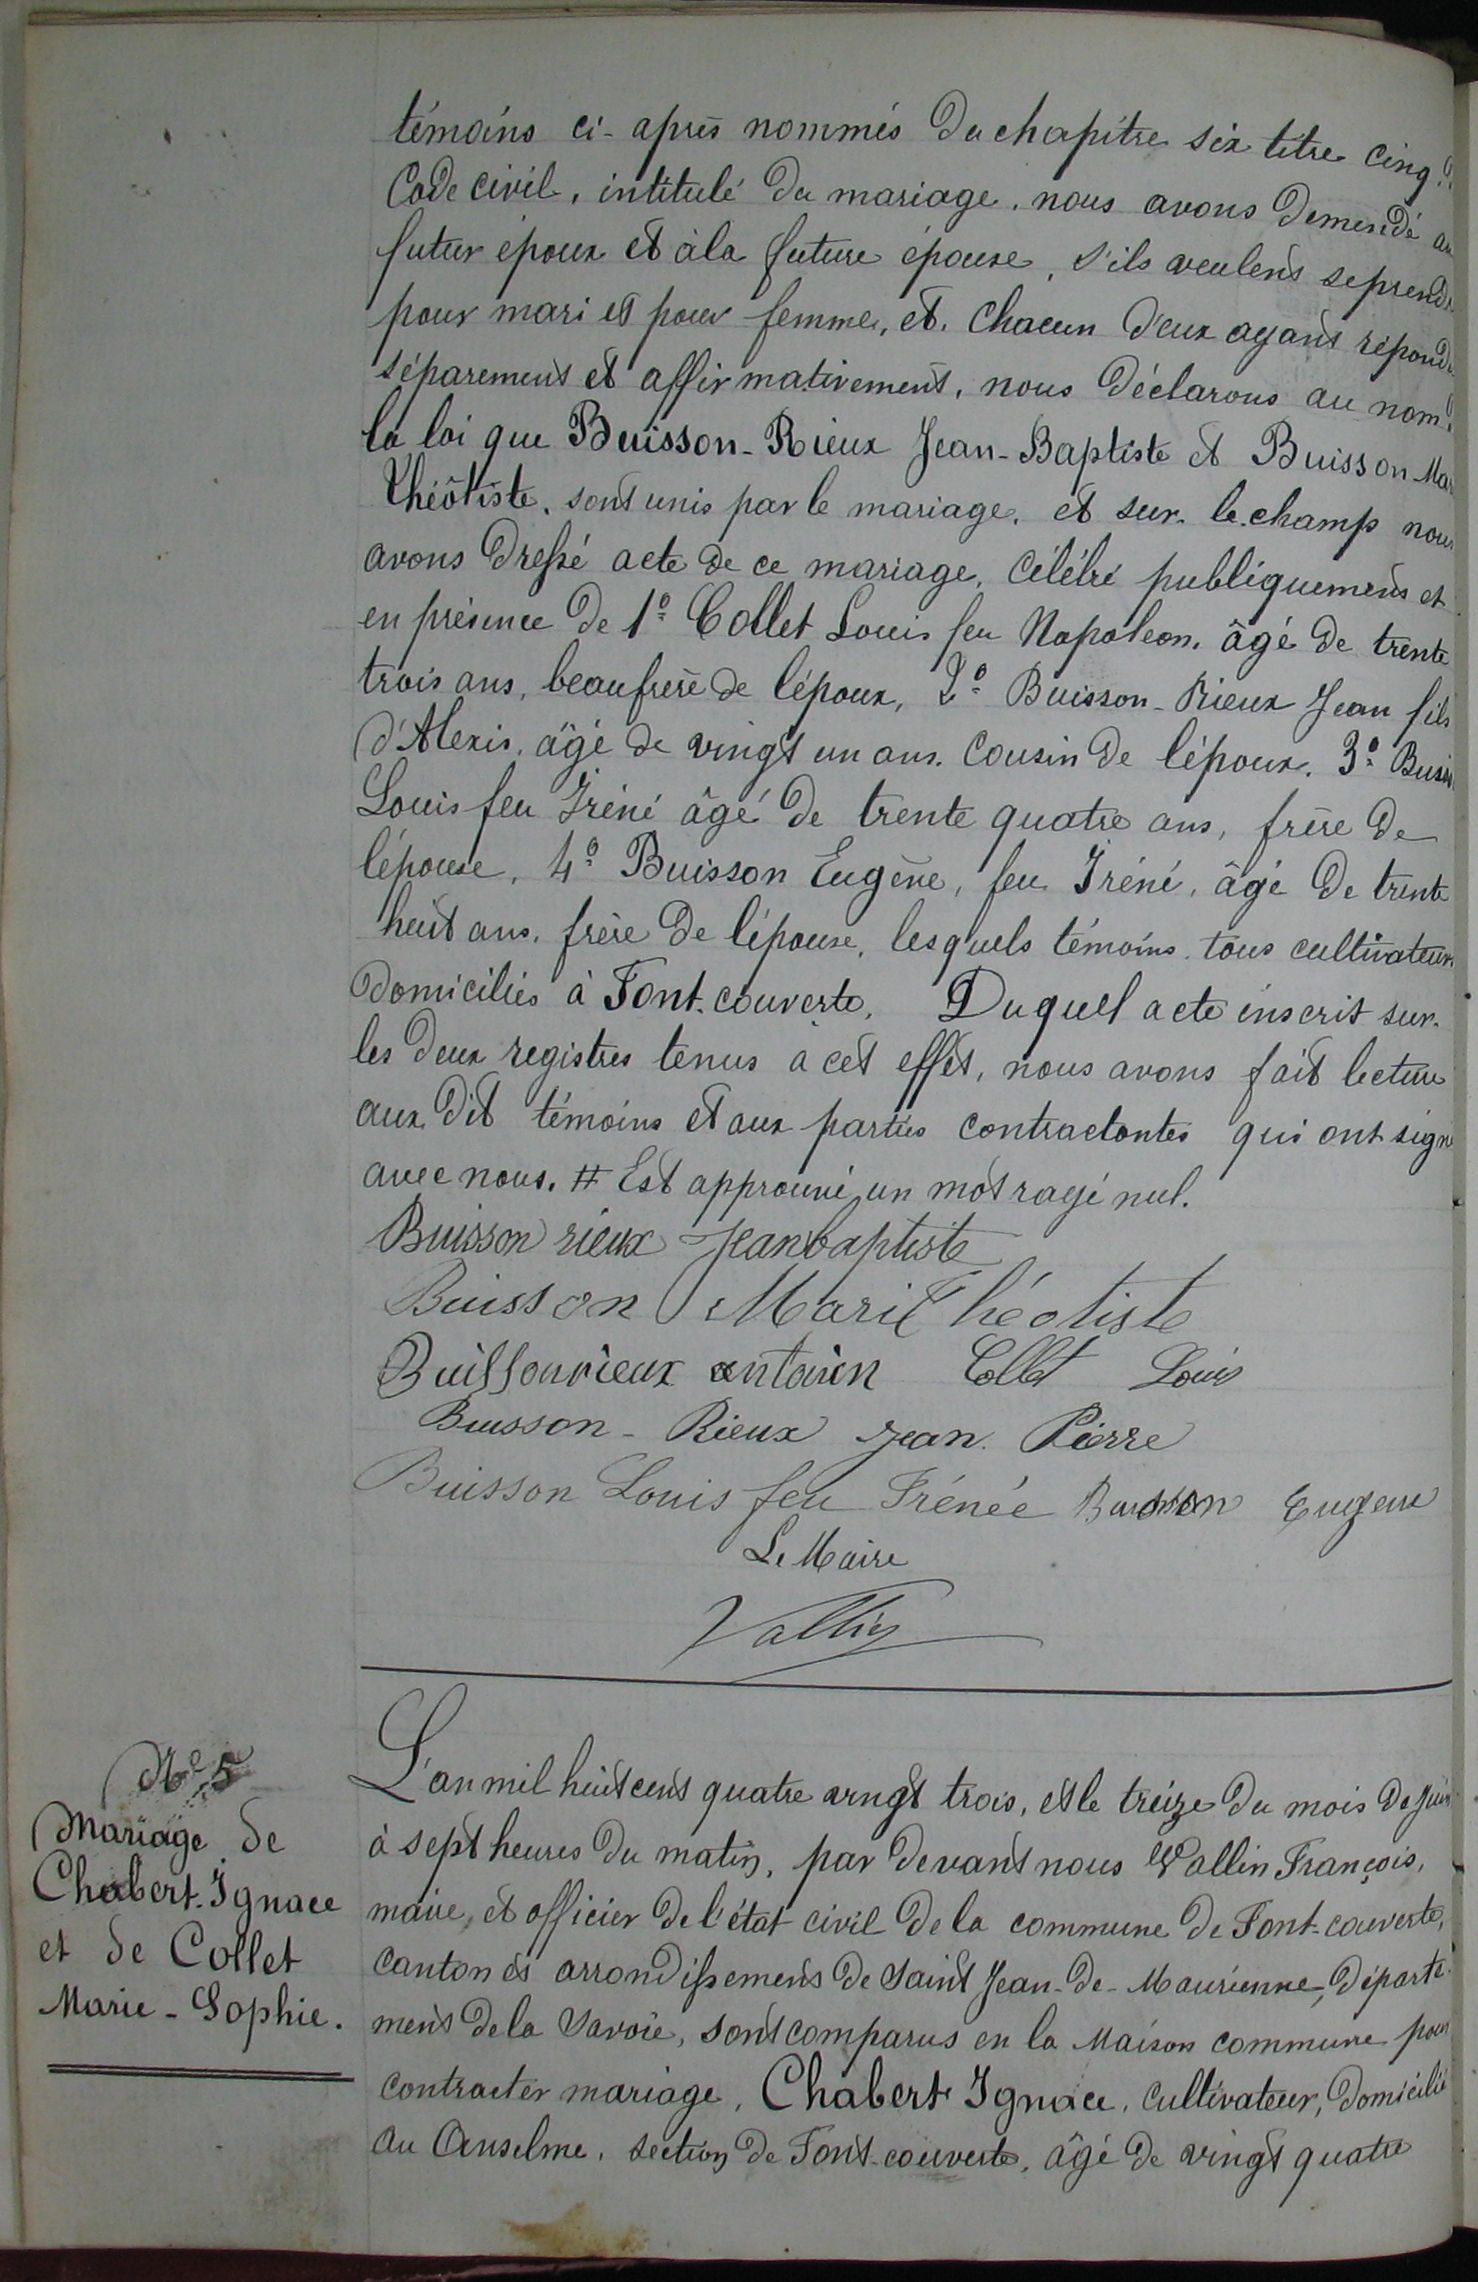 témoins ci-après nommés du chapitre six titre cinq d
Code civil, intitulé du mariage, nous avons demendé au
futur époux et à la future épouse, s'ils veulent se prend
pour mari et pour femme, et chacun d'eux ayant répondu
séparement et affirmativement, nous déclarons au nom d
la loi que Buisson-Rieux Jean-Baptiste et Buisson Mar
Théotiste, sont unis par le mariage, et sur le champ nous
avons dressé acte de ce mariage, célébré publiquement et
en présence de 1º Collet Louis feu Napoleon, âgé de trente
trois ans, beau frère de l'époux, 2º Buisson-Rieux Jean fils
d'Alexis, âgé de vingt un ans, cousin de l'époux, 3º Buisson
Louis feu Iréné âgé de trente quatre ans, frère de
l'épouse, 4º Buisson Eugène, feu Iréné, âgé de trente
huit ans, frère de l'épouse, lesquels témoins tous cultivateurs
domiciliés à Font-couverte. Duquel acte inscrit sur
les deux registres tenus à cet effet, nous avons fait lecture
aux dit témoins et aux parties contractantes qui ont signé
avec nous. # Est approuvé un mot rayé nul.
Buisson rieux jeanbaptiste
Buisson Marie Théotiste
Buissonrieux antoien Collet Louis
Buisson-Rieux Jean Pierre
Buisson Louis feu Irénée Buisson Eugene
Le Maire
Vallin
Nº 5
Mariage de
Chabert Ignace
et de Collet
Marie-Sophie.
L'an mil huit cent quatre vingt trois, et le treize du mois de juin
à sept heures du matin, par devant nous Vallin François,
maire, et officier de l'état civil de la commune de Font-couverte,
canton et arrondissement de Saint Jean-de-Maurienne, départe
ment de la Savoie, sont comparus en la Maison commune pour
contracter mariage, Chabert Ignace, cultivateur, domicilié
au Anselme, section de Font-couverte, âgé de vingt quatre